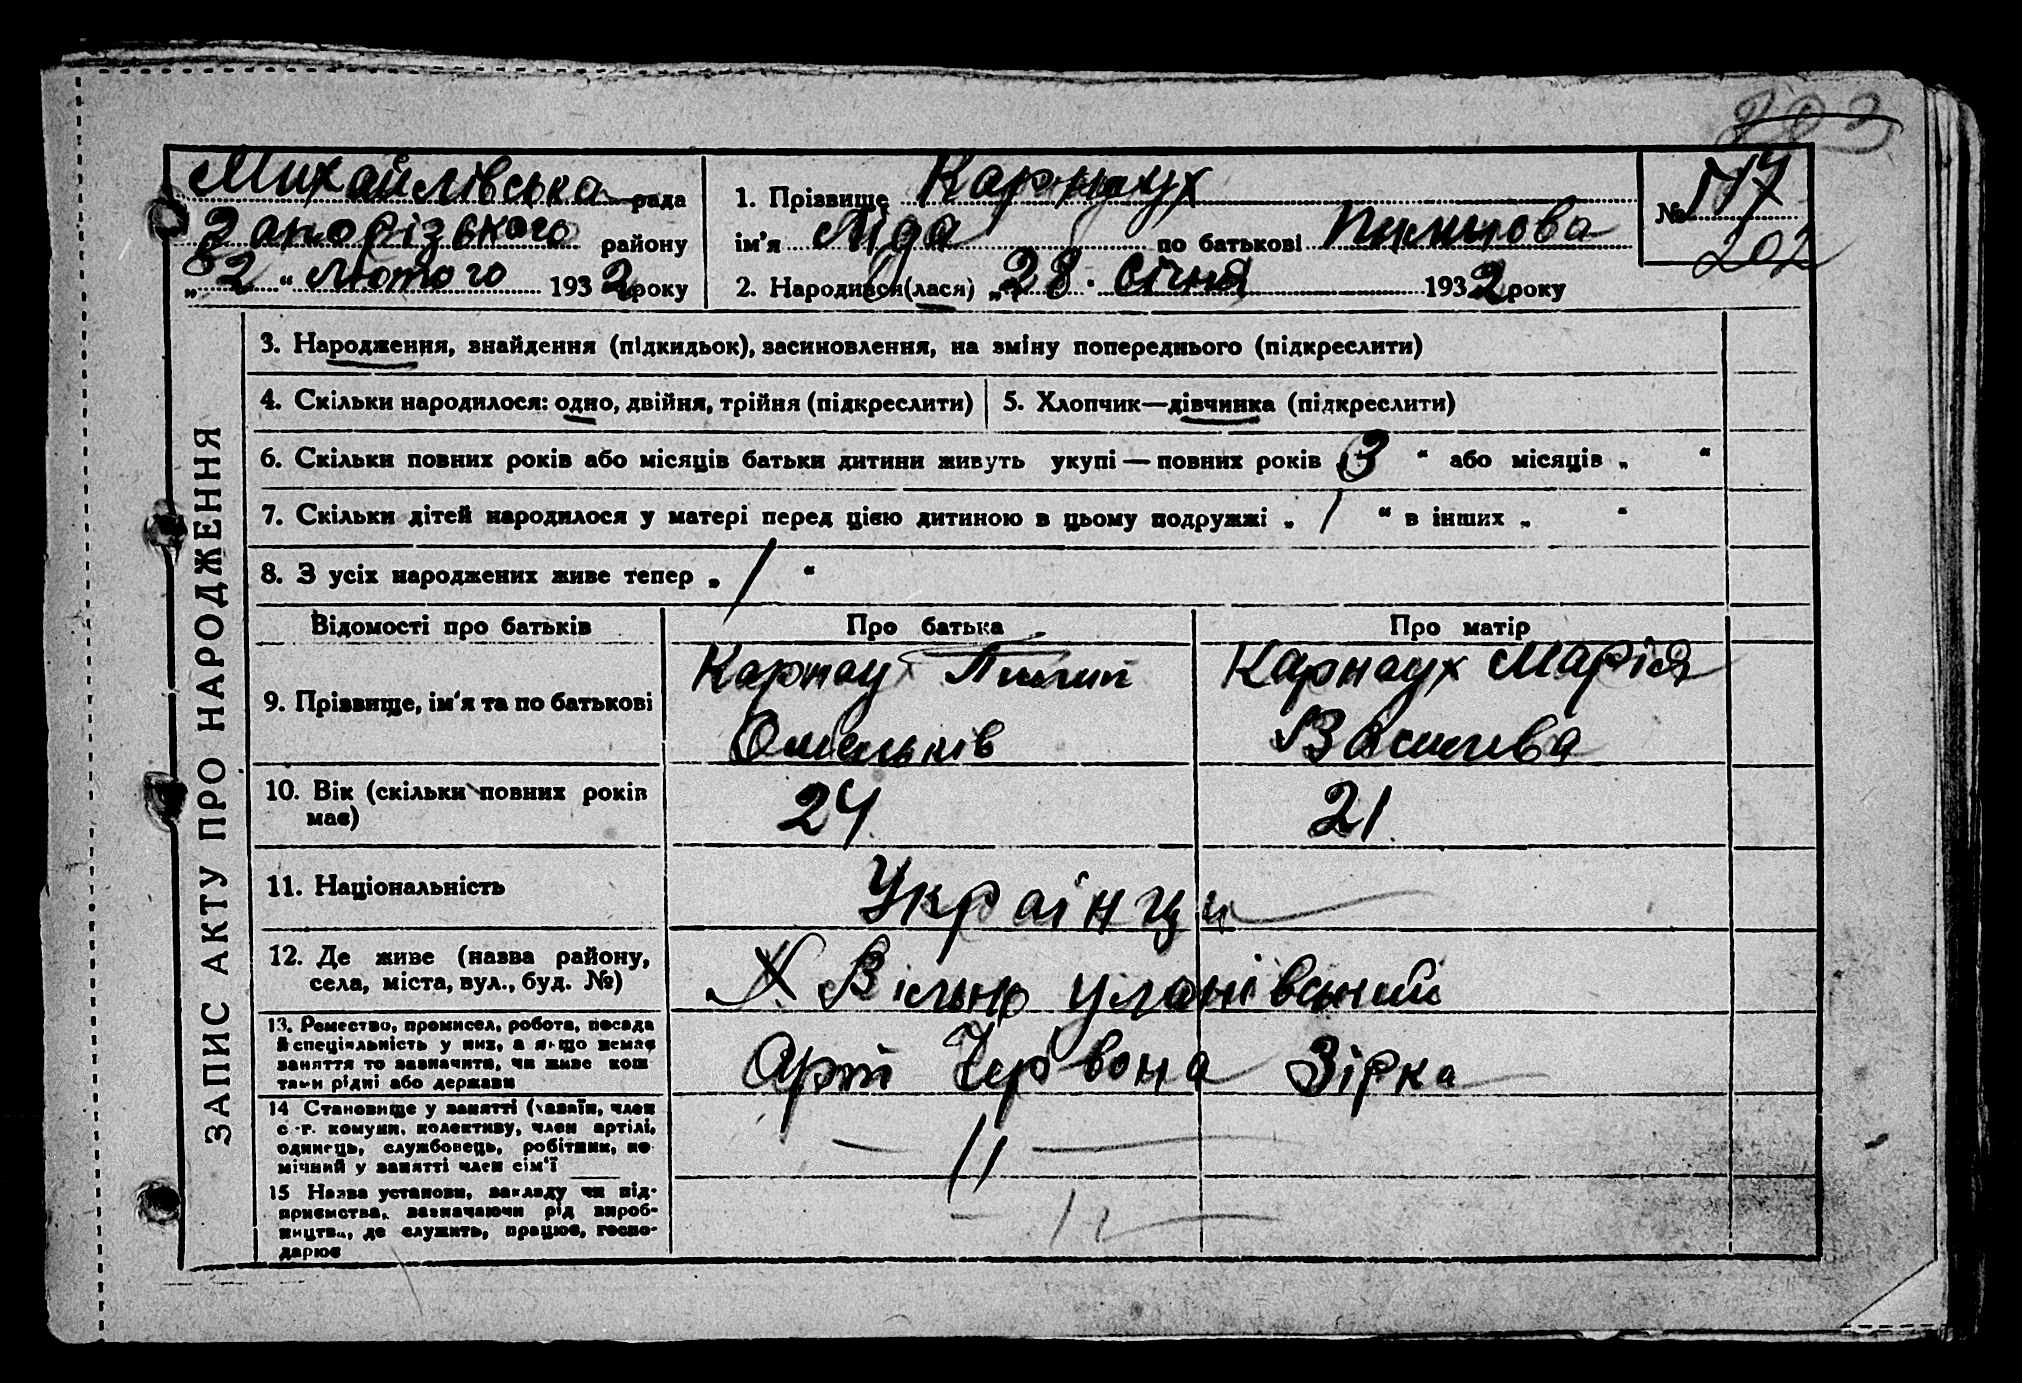 202
Михайлівська рада
Запорізького району
„2“ Лютого 1932 року
1. Прізвище Карнаух
ім'я Ліда по батькові Пилипова
2. Народився(лася) „28. Січня 1932 року
№ 17
202
ЗАПИС АКТУ ПРО НАРОДЖЕННЯ
3. Народження, знайдення (підкидьок), засиновлення, на зміну попереднього (підкреслити)
4. Скільки народилося: одно, двійня, трійня (підкреслити)
5. Хлопчик—дівчинка (підкреслити)
6. Скільки повних років або місяців батьки дитини живуть укупі — повних років „3“ або місяців „ “
7. Скільки дітей народилося у матері перед цією дитиною в цьому подружжі „1“ в інших „ “
8. З усіх народжених живе тепер „1“
Відомості про батьків
Про батька
Про матір
9. Прізвище, ім'я та по батькові
Карнаух Пилип
Омельків
Карнаух Марія
Василева
10. Вік (скільки повних років
має)
24
21
11. Національність
Українци
12. Де живе (назва району,
села, міста, вул., буд. №)
Х Вільно Улонівський
13. Ремество, промисел, робота, посада
й спеціяльність у них, а якщо немає
заняття то зазначити, чи живе кош
тами рідні або держави
Арт Червона Зірка
14 Становище у занятті (хазяїн, член
с.-г. комуни, колективу, член артілі,
одинець, службовець, робітник, по
мічний у занятті член сім'ї
— 11 —
15 Назва установи, закладу чи під-
приємства, зазначаючи рід вироб-
ництва, де служить, працює, госпо-
дарює